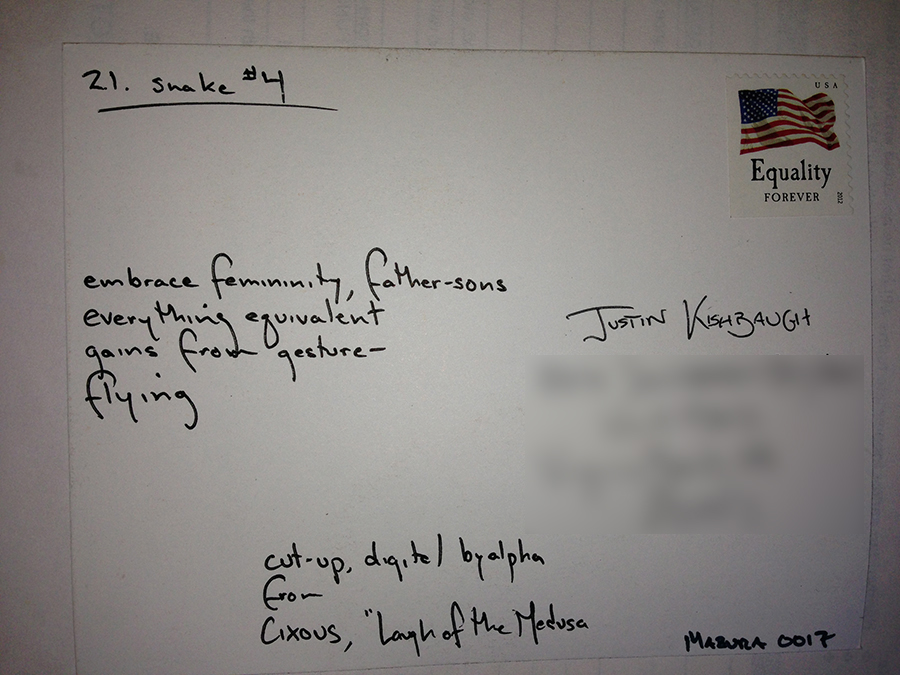 21. snake #4
USA
Equality
FOREVER
2012
embrace femininity, father-sons
everything equivalent
gains from gesture-
flying
JUSTIN KISHBAUGH
cut-up, digital by alpha
from
Cixous, "Laugh of the Medusa
MAZURA 0017